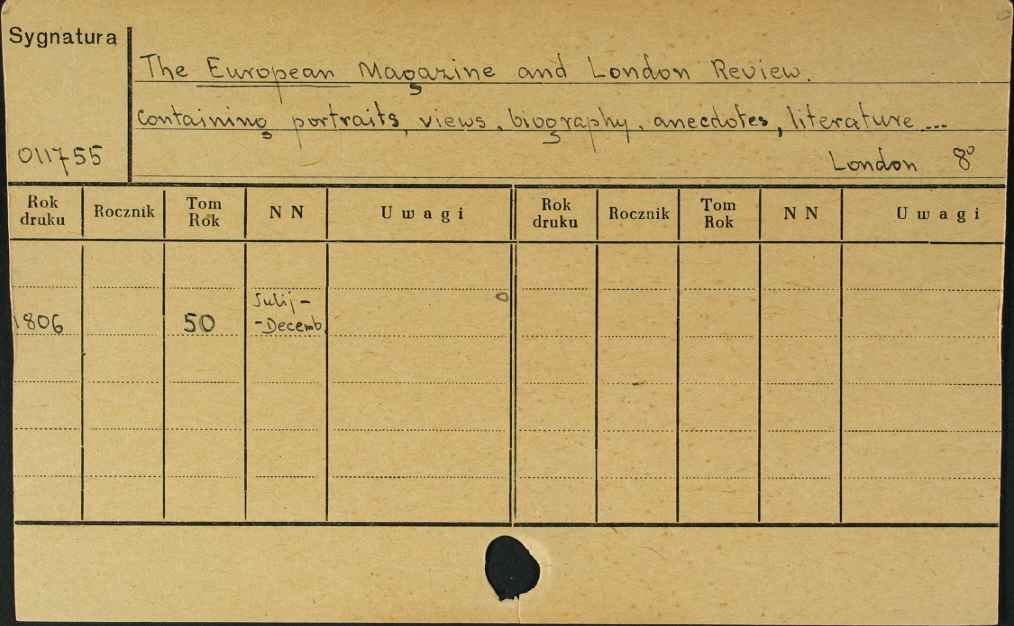 Sygnatura
The European Magazine and London Review.
containing portraits, views, biography, anecdotes, literature ...
011755
London 8°
Rok druku Rocznik Tom Rok NN Uwagi Rok druku Rocznik Tom Rok NN Uwagi
Julij -
1806 50 - Decemb.